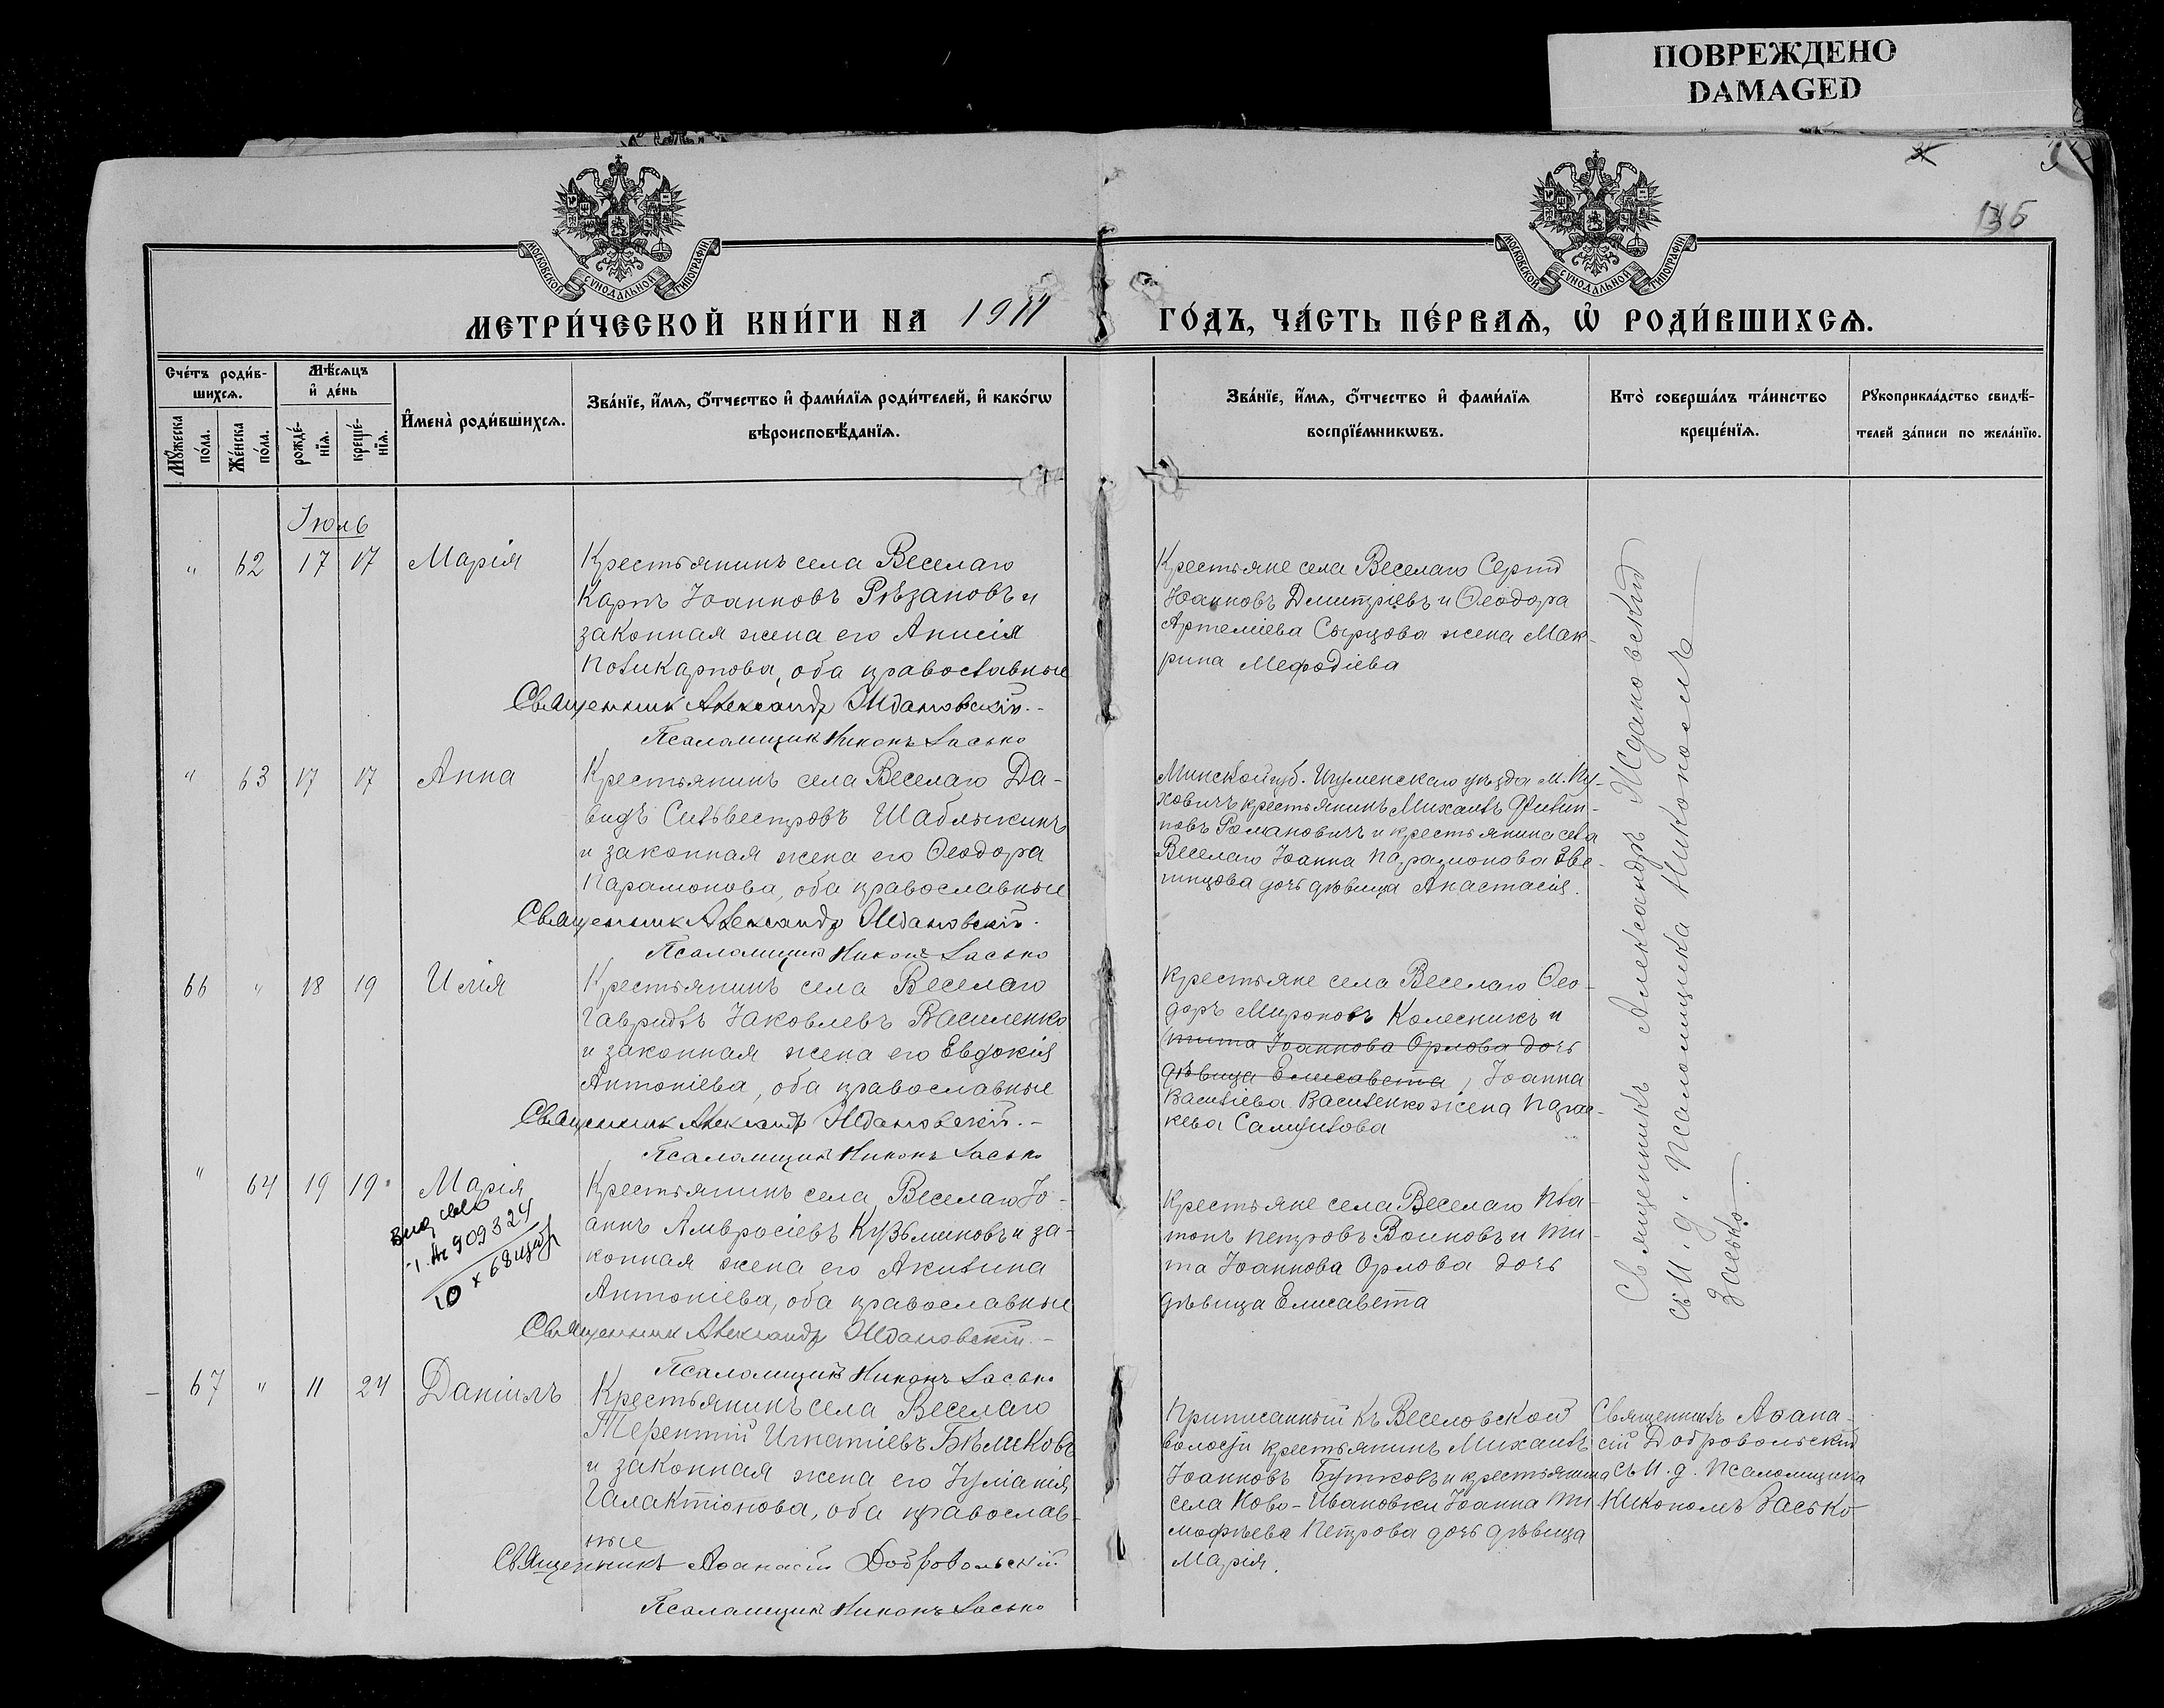 ПОВРЕЖДЕНО
DAMAGED
136
МОСКОВСКОЙ СѴНОДАЛЬНОЙ ТИПОГРАФІИ
МОСКОВСКОЙ СѴНОДАЛЬНОЙ ТИПОГРАФІИ
МЕТРИ́ЧЕСКОЙ КНИ́ГИ НА 1911 ГО́ДЪ, ЧА́СТЬ ПЕ́РВАѦ, Ѡ҆ РОДИ́ВШИХСѦ.
Сче́тъ роди́в-
шихсѧ.
Мꙋ́жеска по́ла.
Же́нска по́ла.
Мѣ́сѧцъ
и҆ де́нь
рожде́-
нїѧ.
креще́-
нїѧ.
И҆мена̀ роди́вшихсѧ.
Зва́нїе, и҆́мѧ, ѻ҆́тчество и҆ фами́лїѧ роди́телей, и҆ како́гѡ
вѣроисповѣ́данїѧ.
Зва́нїе, и҆́мѧ, ѻ҆́тчество и҆ фами́лїѧ
воспрїе́мникѡвъ.
Кто̀ соверша́лъ та́инство
креще́нїѧ.
Рꙋкоприкла́дство свидѣ́-
телей за́писи по жела́нїю.
Іюль
" 62 17 17 Марія
Крестьянинъ села Веселаго
Карпъ Іоанновъ Рѣзановъ и
законная жена его Анисія
Поликарпова, оба православные
Священник Александр Ждановскій.-
Псаломщик Никонъ Засько
Крестьяне села Веселаго Сергій
Іоанновъ Дмитріевъ и Ѳеодора
Артеміева Сырцова жена Мак-
рина Мефодіева
" 63 17 17 Анна
Крестьянинъ села Веселаго Да-
видъ Сильвестровъ Шаблыкинъ
и законная жена его Ѳеодора
Парамонова, оба православные
Священник Александр Ждановскій.
Псаломщик Никонъ Засько
Минской губ. Игуменскаго уѣзда м. Пу-
ховичъ крестьянинъ Михаилъ Филип-
повъ Романовичъ и крестьянина села
Веселаго Іоанна Парамонова Зве-
гинцова дочь дѣвица Анастасія.
66 " 18 19 Илія
Крестьянинъ села Веселаго
Гавріилъ Іаковлевъ Василенко
и законная жена его Евдокія
Антоніева, оба православные
Священник Александр Ждановскій.-
Псаломщик Никонъ Засько
Крестьяне села Веселаго Ѳео-
доръ Мироновъ Колесникъ и
Тита Іоаннова Орлова дочь
дѣвица Елисавета, Іоанна
Васильева Василенко жена Парас-
кева Самуилова
" 64 19 19 Марія
909324
10 х 68
Крестьянинъ села Веселаго Іо-
аннъ Амвросіевъ Кузьминовъ и за-
конная жена его Акилина
Антоніева, оба православные
Священник Александр Ждановскій.-
Псаломщик Никонъ Засько
Крестьяне села Веселаго Пла-
тонъ Петровъ Воиновъ и Ти-
та Іоаннова Орлова дочь
дѣвица Елисавета
Священникъ Александръ Ждановскій
съ И. д. Псаломщика Никономъ
Засько.
67 " 11 24 Даніилъ
Крестьянинъ села Веселаго
Терентій Игнатіевъ Бѣликовъ
и законная жена его Іуліанія
Галактіонова, оба православ-
ные
Священникъ Аѳанасій Добровольскій
Псаломщик Никонъ Засько
Приписанный къ Веселовской
волости крестьянинъ Михаилъ
Іоанновъ Бутковъ и крестьянина
села Ново-Ивановки Іоанна Ти-
мофѣева Петрова дочь дѣвица
Марія.
Священникъ Аѳана-
сій Добровольскій
съ И. д. Псаломщика
Никономъ Засько